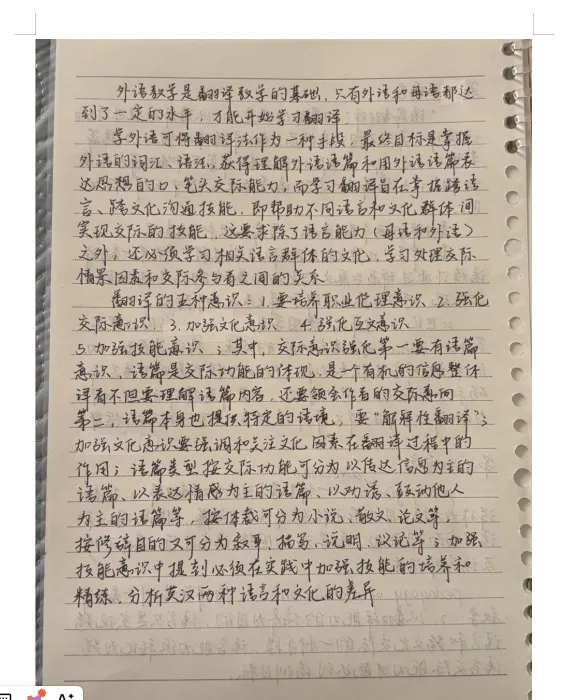 外语教学是翻译教学的基础，只有外语和母语都达
到了一定的水平，才能开始学习翻译
学外语可得翻译法作为一种手段，最终目标是掌握
外语的词汇、语法，获得理解外语语篇和用外语语篇表
达思想的口、笔头交际能力，而学习翻译旨在掌握跨语
言、跨文化沟通技能，即帮助不同语言和文化群体间
实现交际的技能，这要求除了语言能力（母语和外语）
之外，还必须学习相关语言群体的文化，学习处理交际
情景因素和交际参与者之间的关系
翻译的五种意识：1.要培养职业化理意识 2.强化
交际意识 3.加强文化意识 4.强化互文意识
5.加强技能意识；其中，交际意识强化第一要有语篇
意识，语篇是交际功能的体现，是一个有机的信息整体
译者不但要理解语篇内容，还要领会作者的交际意向
第二，语篇本身也提供特定的语境，要“解释性翻译”；
加强文化意识要强调和关注文化因素在翻译过程中的
作用；语篇类型按交际功能可分为以传达信息为主的
语篇、以表达情感为主的语篇、以劝诱、鼓动他人
为主的语篇等，按体裁可分为小说、散文、论文等，
按修辞目的又可分为叙事、描写、说明、议论等；加强
技能意识中提到必须在实践中加强技能的培养和
精练，分析英汉两种语言和文化的差异